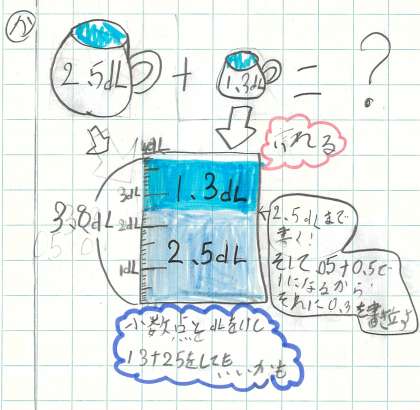 2.5dL + 1.3dL = ?
4dL
3dL
2dL
1dL
3.8dL
1.3dL
2.5dL
2.5dLまで
書く!
そして 0.5+0.5で
1になるから
それに0.3を
小数点とdLをけして
13+25をしてもいいかも